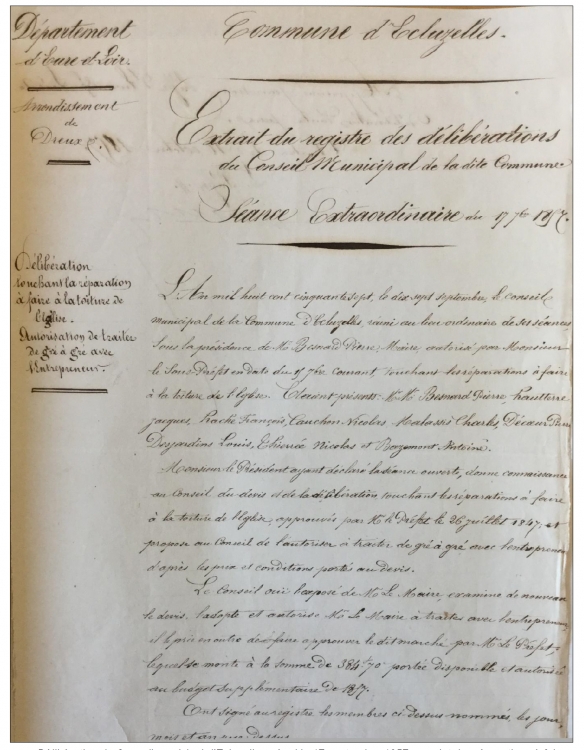 Département
d'Eure et Loir.
Arrondissement
de
Dreux.
Commune d'Ecluzelles.
Extrait du registre des délibérations
du Conseil Municipal de la dite Commune
Séance Extraordinaire du 17 7bre 1857.
Délibération
touchant la réparation
à faire à la toiture de
l'Eglise.
Autorisation de traiter
de gré à gré avec
l'Entrepreneur.
L'An mil huit cent cinquante sept, le dix sept septembre, le conseil
municipal de la Commune d'Ecluzelles, réuni au lieu ordinaire de ses séances
sous la présidence de Mr Besnard Pierre, Maire, autorisé par Monsieur
le Sous-Préfet en date du 7bre courant, touchant les réparations à faire
à la toiture de l'Eglise. Etaient présents: MM Besnard Pierre,
Jacques, François, Cauchon Nicolas, Malassis Charles,
Desjardins Louis, Nicolas et Antoine.
Monsieur le Président ayant déclaré la séance ouverte, donne connaissance
au Conseil du devis et de la délibération touchant les réparations à faire
à la toiture de l'Eglise, approuvés par Mr le Préfet le 26 juillet 1847. et
propose au Conseil de l'autoriser à traiter de gré à gré avec l'entrepreneur
d'après les prix et conditions portés au devis.
Le Conseil ouï l'exposé de Mr Le Maire, examine de nouveau
le devis, l'adopte et autorise Mr Le Maire à traiter avec l'entrepreneur,
il le prie en outre de faire approuver le dit marché par Mr Le Préfet
lequel se monte à la somme de 384f 70c portée disponible et autorisée
au budget supplémentaire de 1857.
Ont signé au registre les membres ci dessus nommés, les jour,
mois et an que dessus